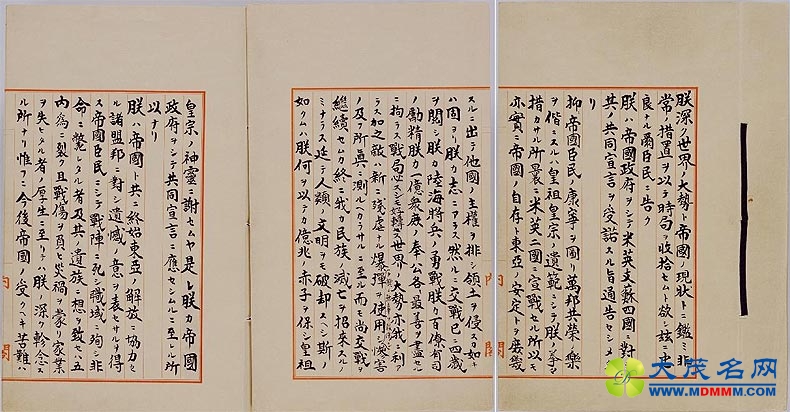 朕深ク世界ノ大勢ト帝國ノ現狀トニ鑑ミ非
常ノ措置ヲ以テ時局ヲ收拾セムト欲シ茲ニ忠
良ナル爾臣民ニ告ク
朕ハ帝國政府ヲシテ米英支蘇四國ニ對シ
其ノ共同宣言ヲ受諾スル旨通告セシメタ
リ
抑帝國臣民ノ康寧ヲ圖リ萬邦共榮ノ樂
ヲ偕ニスルハ皇祖皇宗ノ遺範ニシテ朕ノ拳々
措カサル所曩ニ米英二國ニ宣戰セル所以モ
亦實ニ帝國ノ自存ト東亞ノ安定トヲ庶幾
內閣
スルニ出テ他國ノ主權ヲ排シ領土ヲ侵スカ如キ
ハ固ヨリ朕カ志ニアラス然ルニ交戰已ニ四歲
ヲ閱シ朕カ陸海將兵ノ勇戰朕カ百僚有司
ノ勵精朕カ一億衆庶ノ奉公各最善ヲ盡セル
ニ拘ラス戰局必スシモ好轉セス世界ノ大勢亦我ニ利ア
ラス加之敵ハ新ニ殘虐ナル爆彈ヲ使用シ慘害
ノ及フ所眞ニ測ルヘカラサルニ至ル而モ尚交戰ヲ
繼續セムカ終ニ我カ民族ノ滅亡ヲ招來スルノ
ミナラス延テ人類ノ文明ヲモ破却スヘシ斯ノ
如クムハ朕何ヲ以テカ億兆ノ赤子ヲ保シ皇祖
皇宗ノ神靈ニ謝セムヤ是レ朕カ帝國
政府ヲシテ共同宣言ニ應セシムルニ至レル所
以ナリ
朕ハ帝國ト共ニ終始東亞ノ解放ニ協力セ
ル諸盟邦ニ對シ遺憾ノ意ヲ表セサルヲ得
ス帝國臣民ニシテ戰陣ニ死シ職域ニ殉シ非
命ニ斃レタル者及其ノ遺族ニ想ヲ致セハ五
內爲ニ裂ク且戰傷ヲ負ヒ災禍ヲ蒙リ家業
ヲ失ヒタル者ノ厚生ニ至リテハ朕ノ深ク軫念ス
ル所ナリ惟フニ今後帝國ノ受クヘキ苦難ハ
內閣
大茂名网
WWW.MDMMM.COM